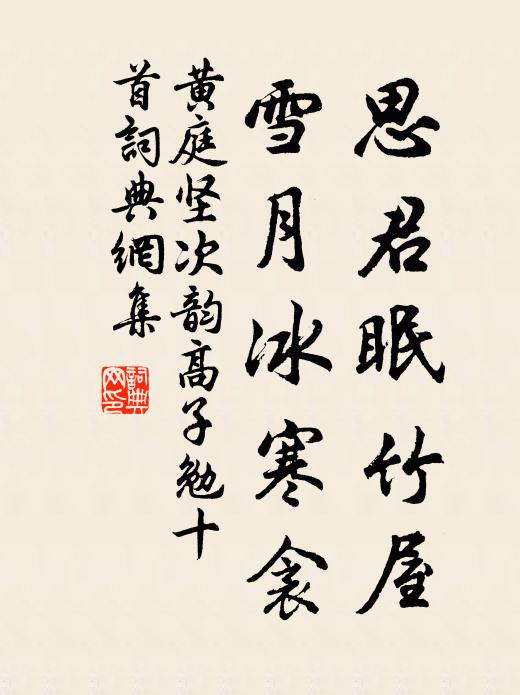 思君眠竹屋
雪月冰寒衾
黄庭坚次韵高子勉十
首詞典網集
詞典網印